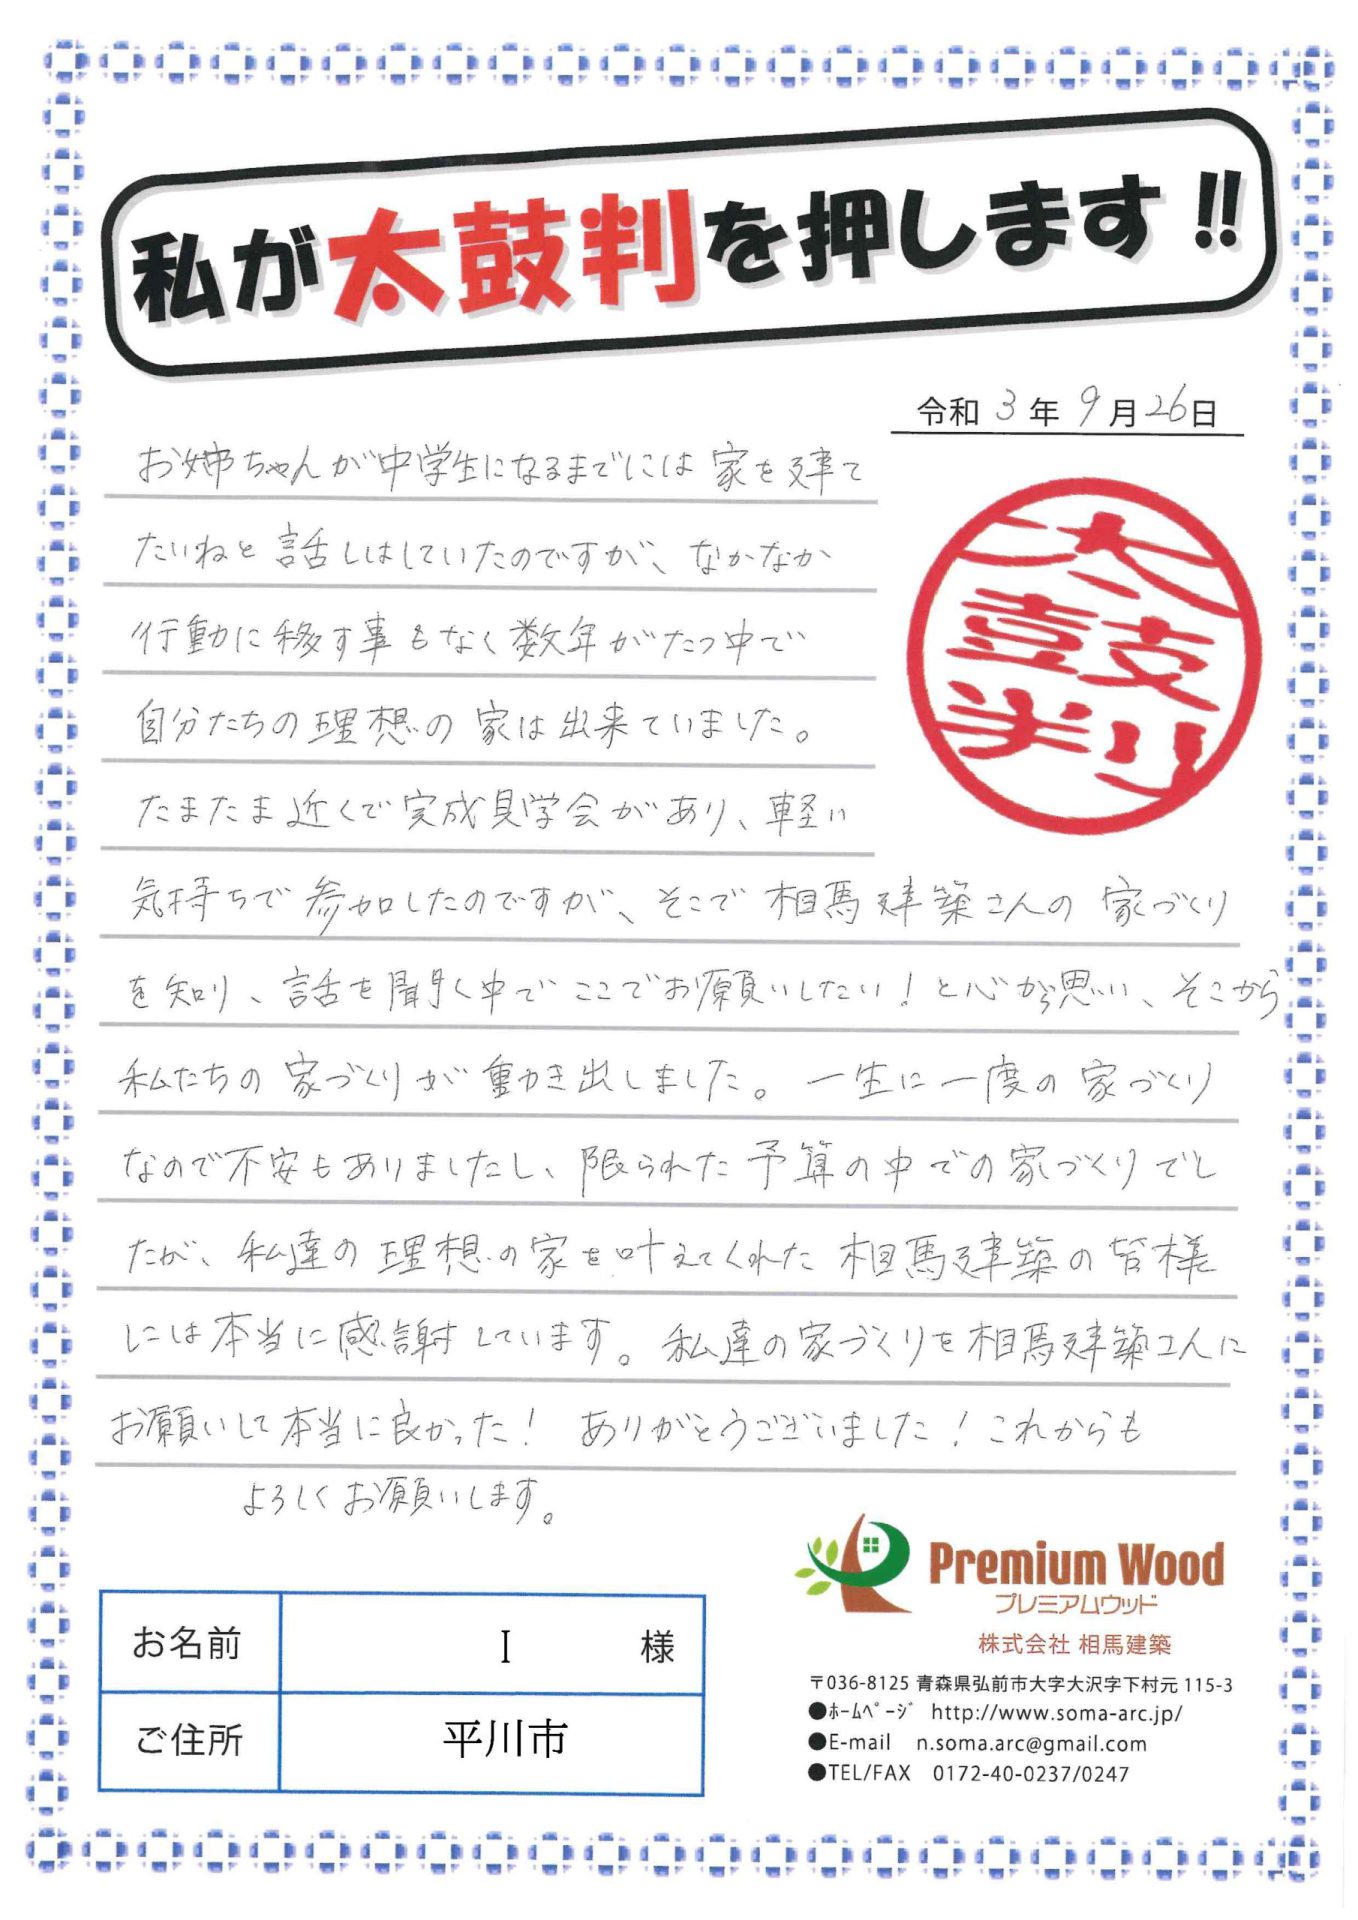 私が太鼓判を押します!!
令和 3 年 9 月 26 日
お姉ちゃんが中学生になるまでには家を建て
たいねと話しはしていたのですが、なかなか
行動に移す事もなく数年がたつ中で
自分たちの理想の家は出来ていました。
たまたま近くで完成見学会があり、軽い
気持ちで参加したのですが、そこで相馬建築さんの家づくり
を知り、話を聞く中でここでお願いしたい!と心から思い、そこから
私たちの家づくりが動き出しました。一生に一度の家づくり
なので不安もありましたし、限られた予算の中での家づくりでし
たが、私達の理想の家を叶えてくれた相馬建築の皆様
には本当に感謝しています。私達の家づくりを相馬建築さんに
お願いして本当に良かった!ありがとうございました!これからも
よろしくお願いします。
太鼓判
お名前 I 様
ご住所 平川市
Premium Wood
プレミアムウッド
株式会社 相馬建築
〒036-8125 青森県弘前市大字大沢字下村元 115-3
●ホームページ http://www.soma-arc.jp/
●E-mail n.soma.arc@gmail.com
●TEL/FAX 0172-40-0237/0247